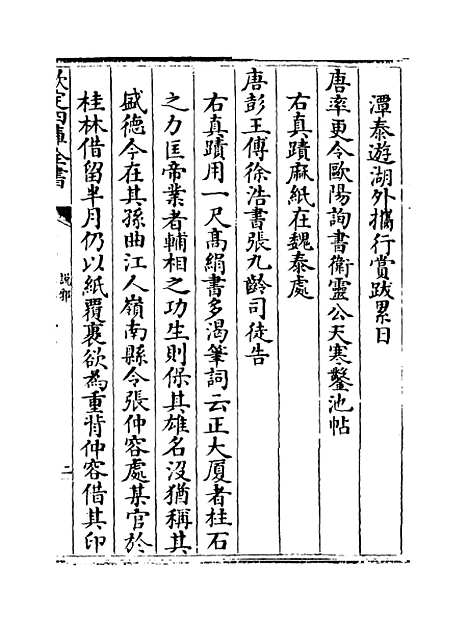 潭泰遊湖外攜行賞跋累日
唐率更令歐陽詢書衛靈公天寒鑿池帖
右真蹟麻紙在魏泰處
唐彭王傅徐浩書張九齡司徒告
右真蹟用一尺髙絹書多渴筆詞云正大厦者柱石
之力匡帝業者輔相之功生則保其雄名沒猶稱其
盛德今在其孫曲江人嶺南縣令張仲容處某官於
桂林借留半月仍以紙覆裹欲為重背仲容借其印
欽定四庫全書
說郛
二